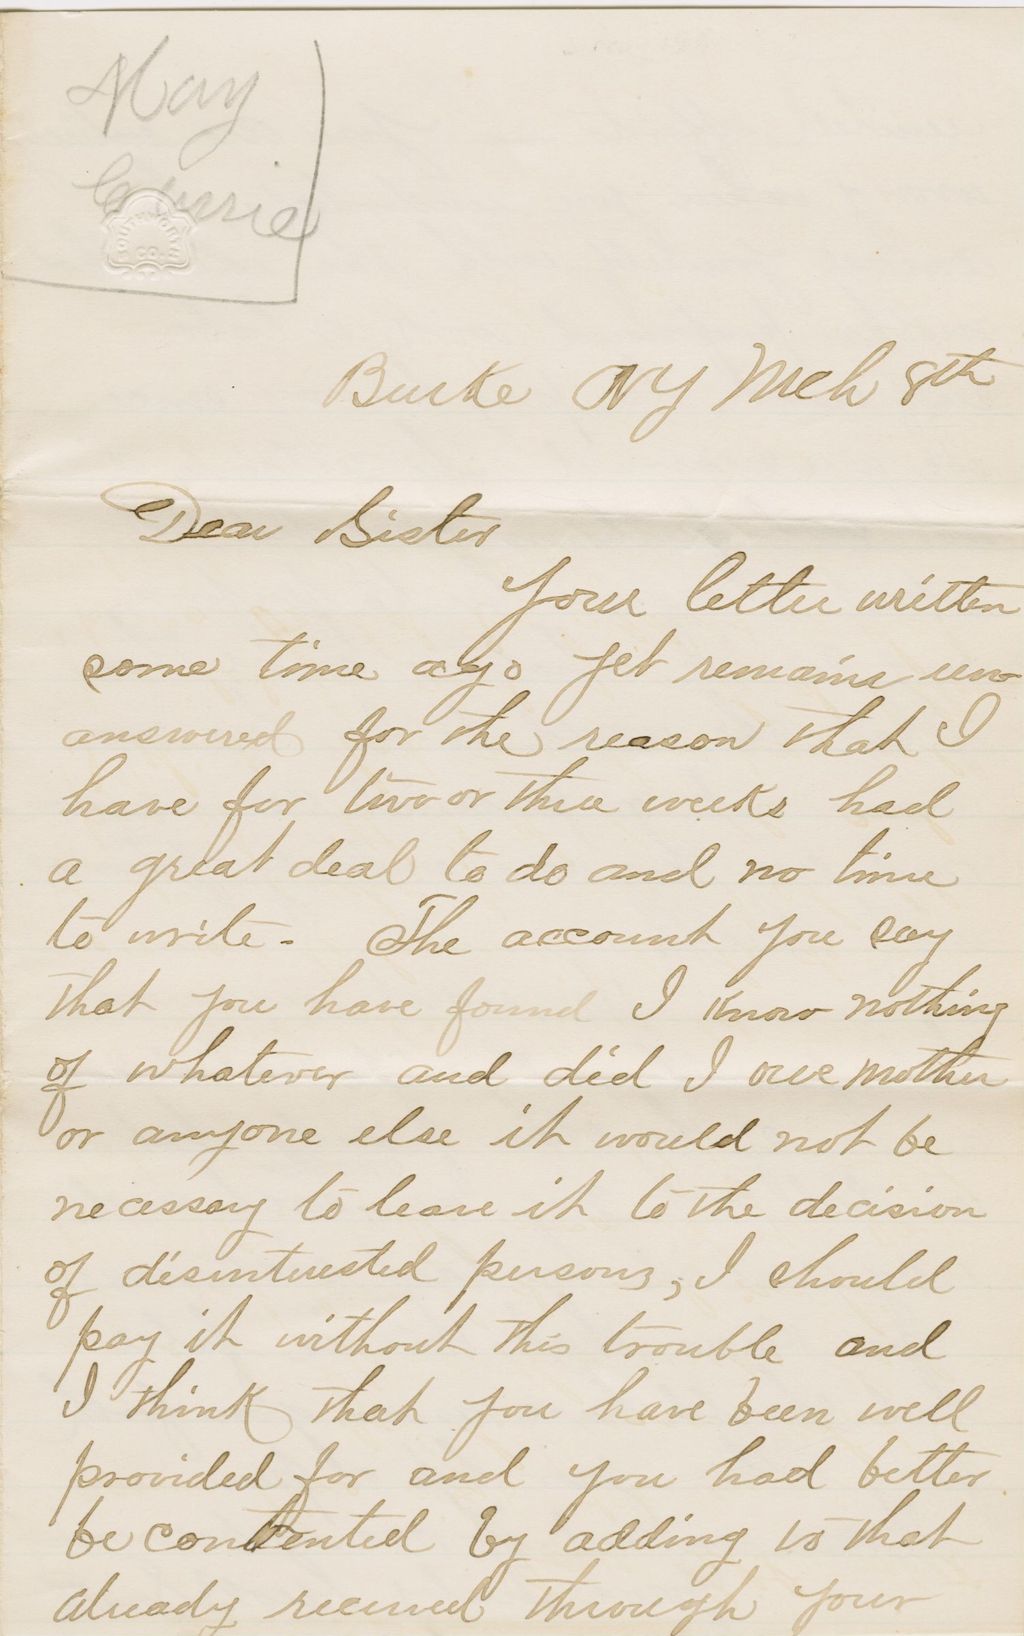 May
Currie
SOUTHWORTH
CO.
Burke NY Mch 8th
Dear Sister
Your letter written
some time ago yet remains un
answered for the reason that I
have for two or three weeks had
a great deal to do and no time
to write - The account you say
that you have found I know nothing
of whatever and did I owe mother
or anyone else it would not be
necessary to leave it to the decision
of disinterested persons, I should
pay it without this trouble and
I think that you have been well
provided for and you had better
be contented by adding to that
already received through your